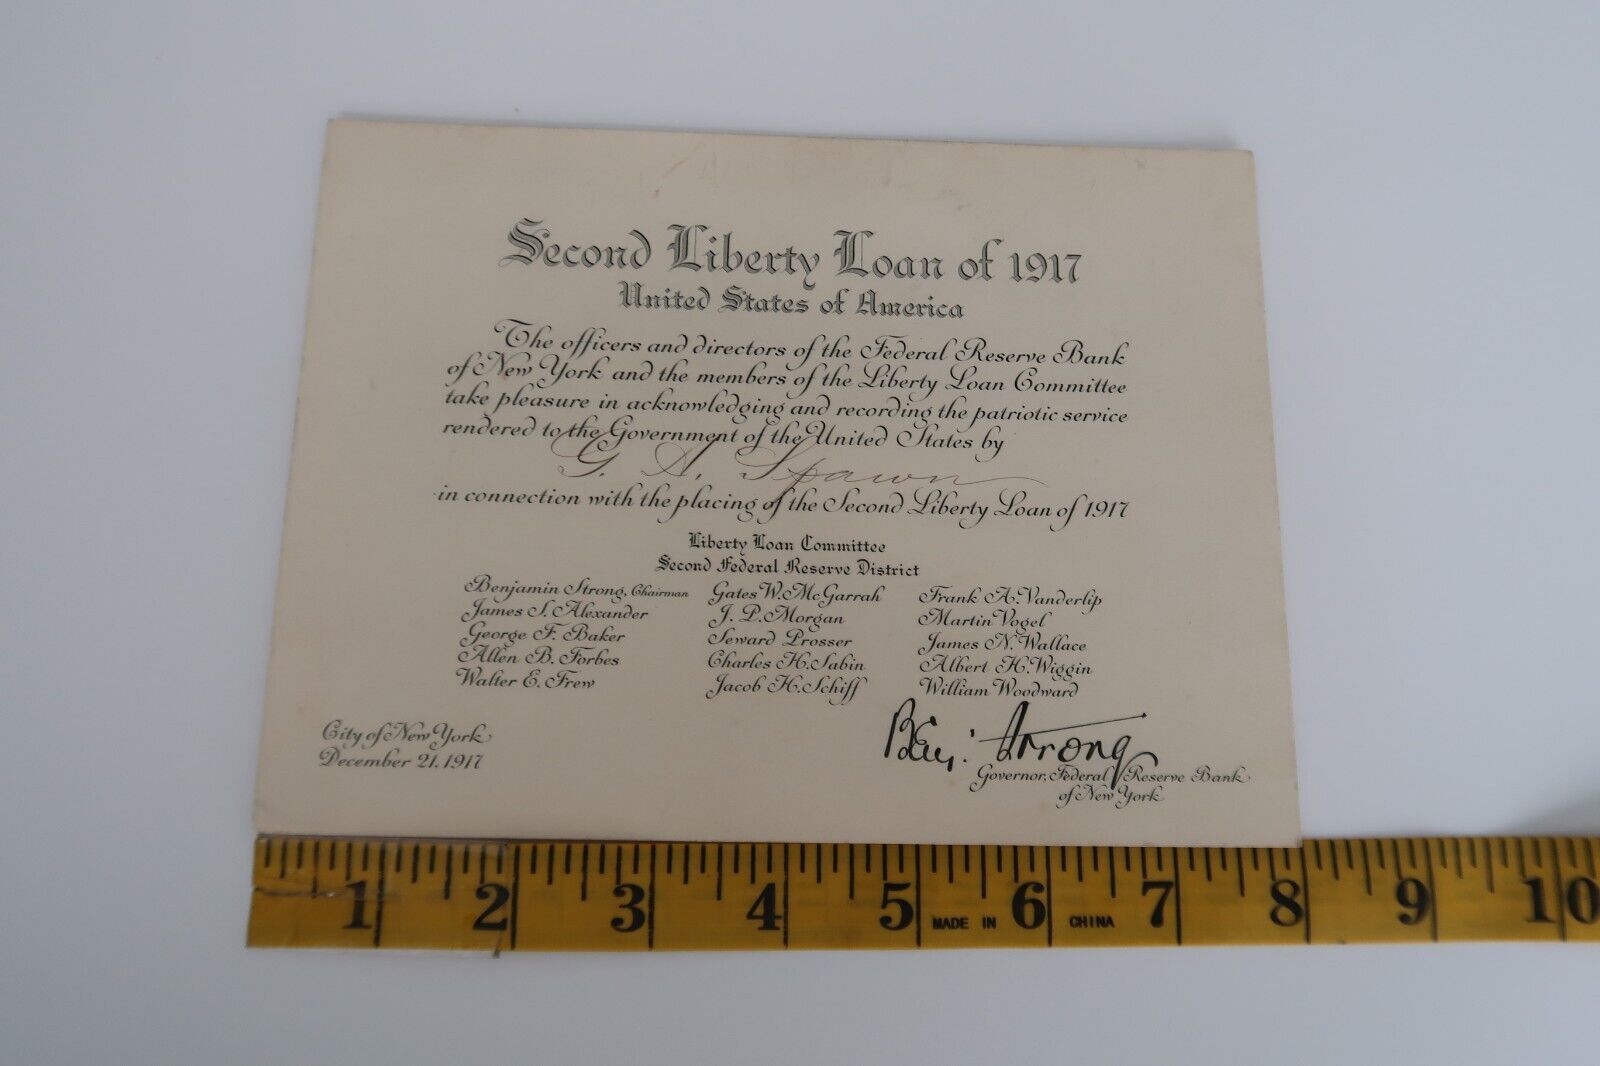 Second Liberty Loan of 1917
United States of America
The officers and directors of the Federal Reserve Bank
of New York and the members of the Liberty Loan Committee
take pleasure in acknowledging and recording the patriotic service
rendered to the Government of the United States by
G. A. Spawn
in connection with the placing of the Second Liberty Loan of 1917
Liberty Loan Committee
Second Federal Reserve District
Benjamin Strong, Chairman
James S. Alexander
George F. Baker
Allen B. Forbes
Walter E. Frew
Gates W. McGarrah
J. P. Morgan
Seward Prosser
Charles H. Sabin
Jacob H. Schiff
Frank A. Vanderlip
Martin Vogel
James N. Wallace
Albert H. Wiggin
William Woodward
City of New York
December 21, 1917
Benj. Strong
Governor, Federal Reserve Bank
of New York
1 2 3 4 5 MADE IN 6 CHINA 7 8 9 10